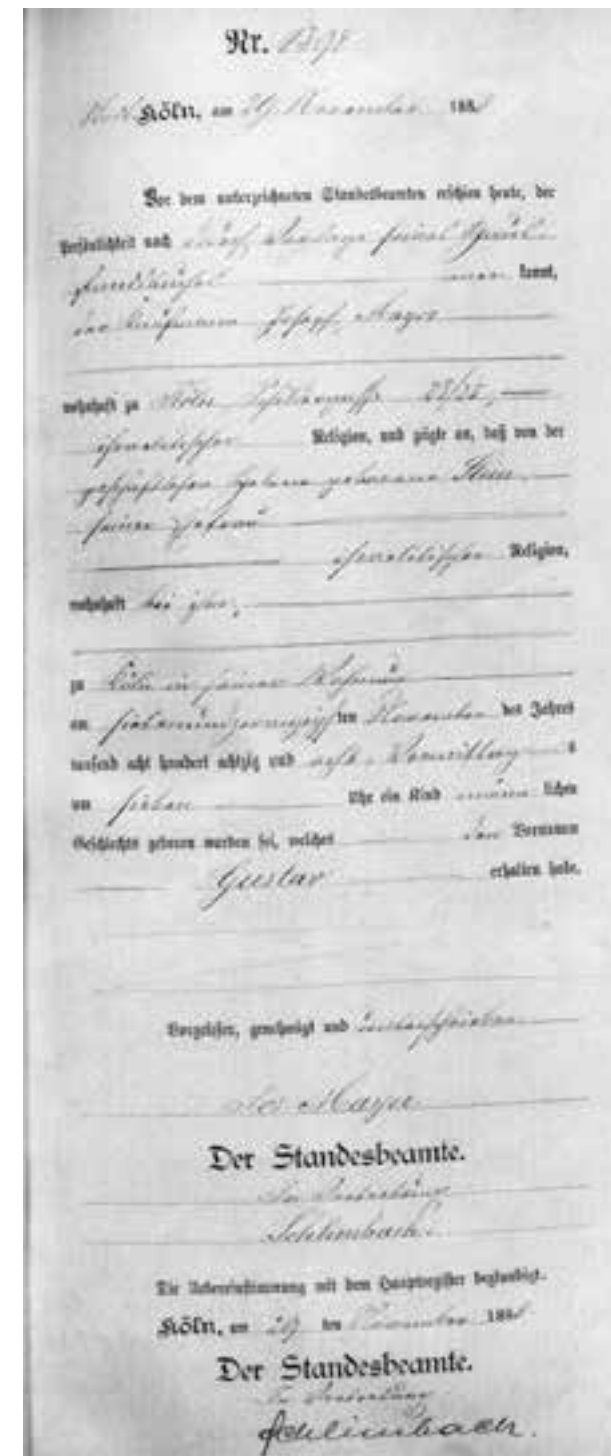 Nr.
Köln, am 29 November 188
Vor dem unterzeichneten Standesbeamten erschien heute, der
Persönlichkeit nach durch Vorlage seines
kannt,
der Kaufmann Joseph Mayer
wohnhaft zu Köln, Schildergasse
israelitischer Religion, und zeigte an, daß von der
geschäftslosen Helene geborene
seiner Ehefrau
israelitischer Religion,
wohnhaft bei ihm,
zu Köln in seiner Wohnung
am siebenundzwanzigsten November des Jahres
tausend acht hundert achtzig und acht Vormittag s
um sieben Uhr ein Kind männ lichen
Geschlechts geboren worden sei, welches den Vornamen
Gustav erhalten habe.
Vorgelesen, genehmigt und unterschrieben
Jos Mayer
Der Standesbeamte.
In Vertretung
Schlimbach.
Die Uebereinstimmung mit dem Hauptregister beglaubigt.
Köln, am 29 ten November 188
Der Standesbeamte.
In Vertretung
Schlimbach.